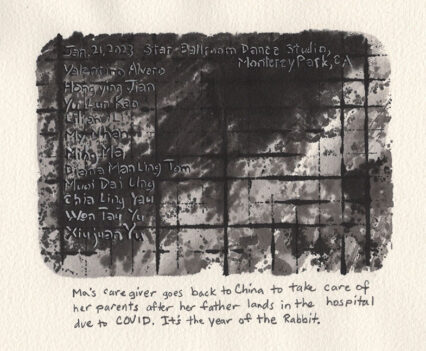 Jan, 21, 2023 Star Ballroom Dance Studio,
Monterey Park, CA
Valentino Alvero
Hongying Jian
Yu Lun Kao
Lilian Li
My Nhan
Ming Ma
Diana Man Ling Tom
Muoi Dai Ung
Chia Ling Yau
Wen Tau Yu
Xiujuan Yu
Ma's caregiver goes back to China to take care of
her parents after her father lands in the hospital
due to COVID. It's the year of the Rabbit.